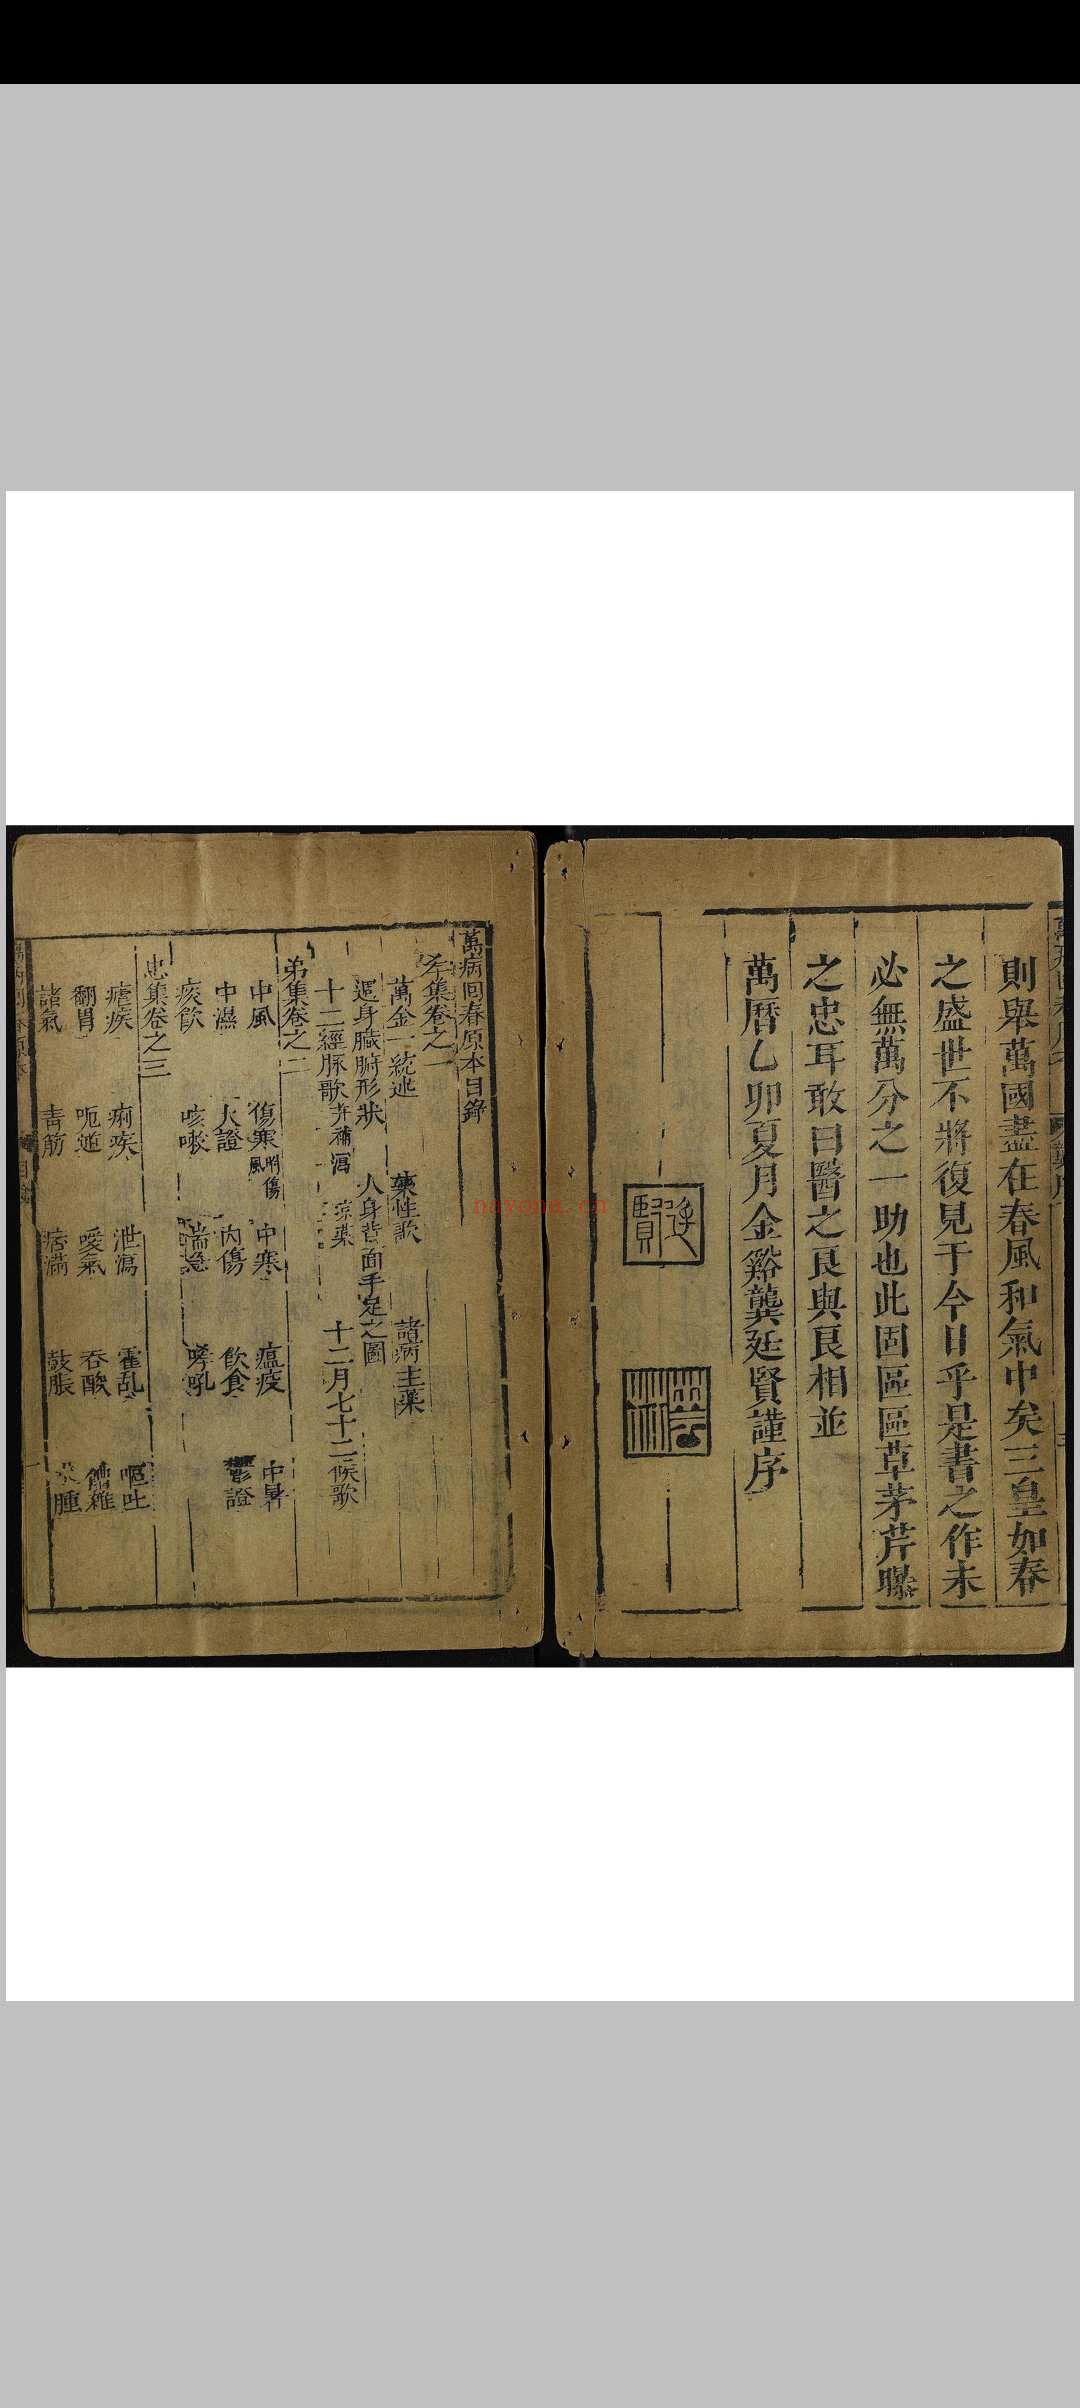 則舉萬國盡在春風和氣中矣三皇如春
之盛世不將復見于今日乎是書之作未
必無萬分之一助也此固區區草茅芹曝
之忠耳敢曰醫之良與良相並
萬曆乙卯夏月金谿龔廷賢謹序
廷賢
萬病回春原本目錄
孝集卷之一
萬金一統述 藥性歌 諸病主藥
遐身臟腑形狀 人身背面手足之圖
十二經脉歌并補瀉涼藥 十二月七十二候歌
弟集卷之二
中風 傷寒附傷風 中寒 瘟疫 中暑
中濕 火證 內傷 飲食 鬱證
痰飲 咳嗽 喘急 哮吼
忠集卷之三
瘧疾 痢疾 泄瀉 霍乱 嘔吐
翻胃 呃逆 噯氣 吞酸 嘈雜
諸氣 青筋 痞滿 鼓脹 水腫
nayona.cn